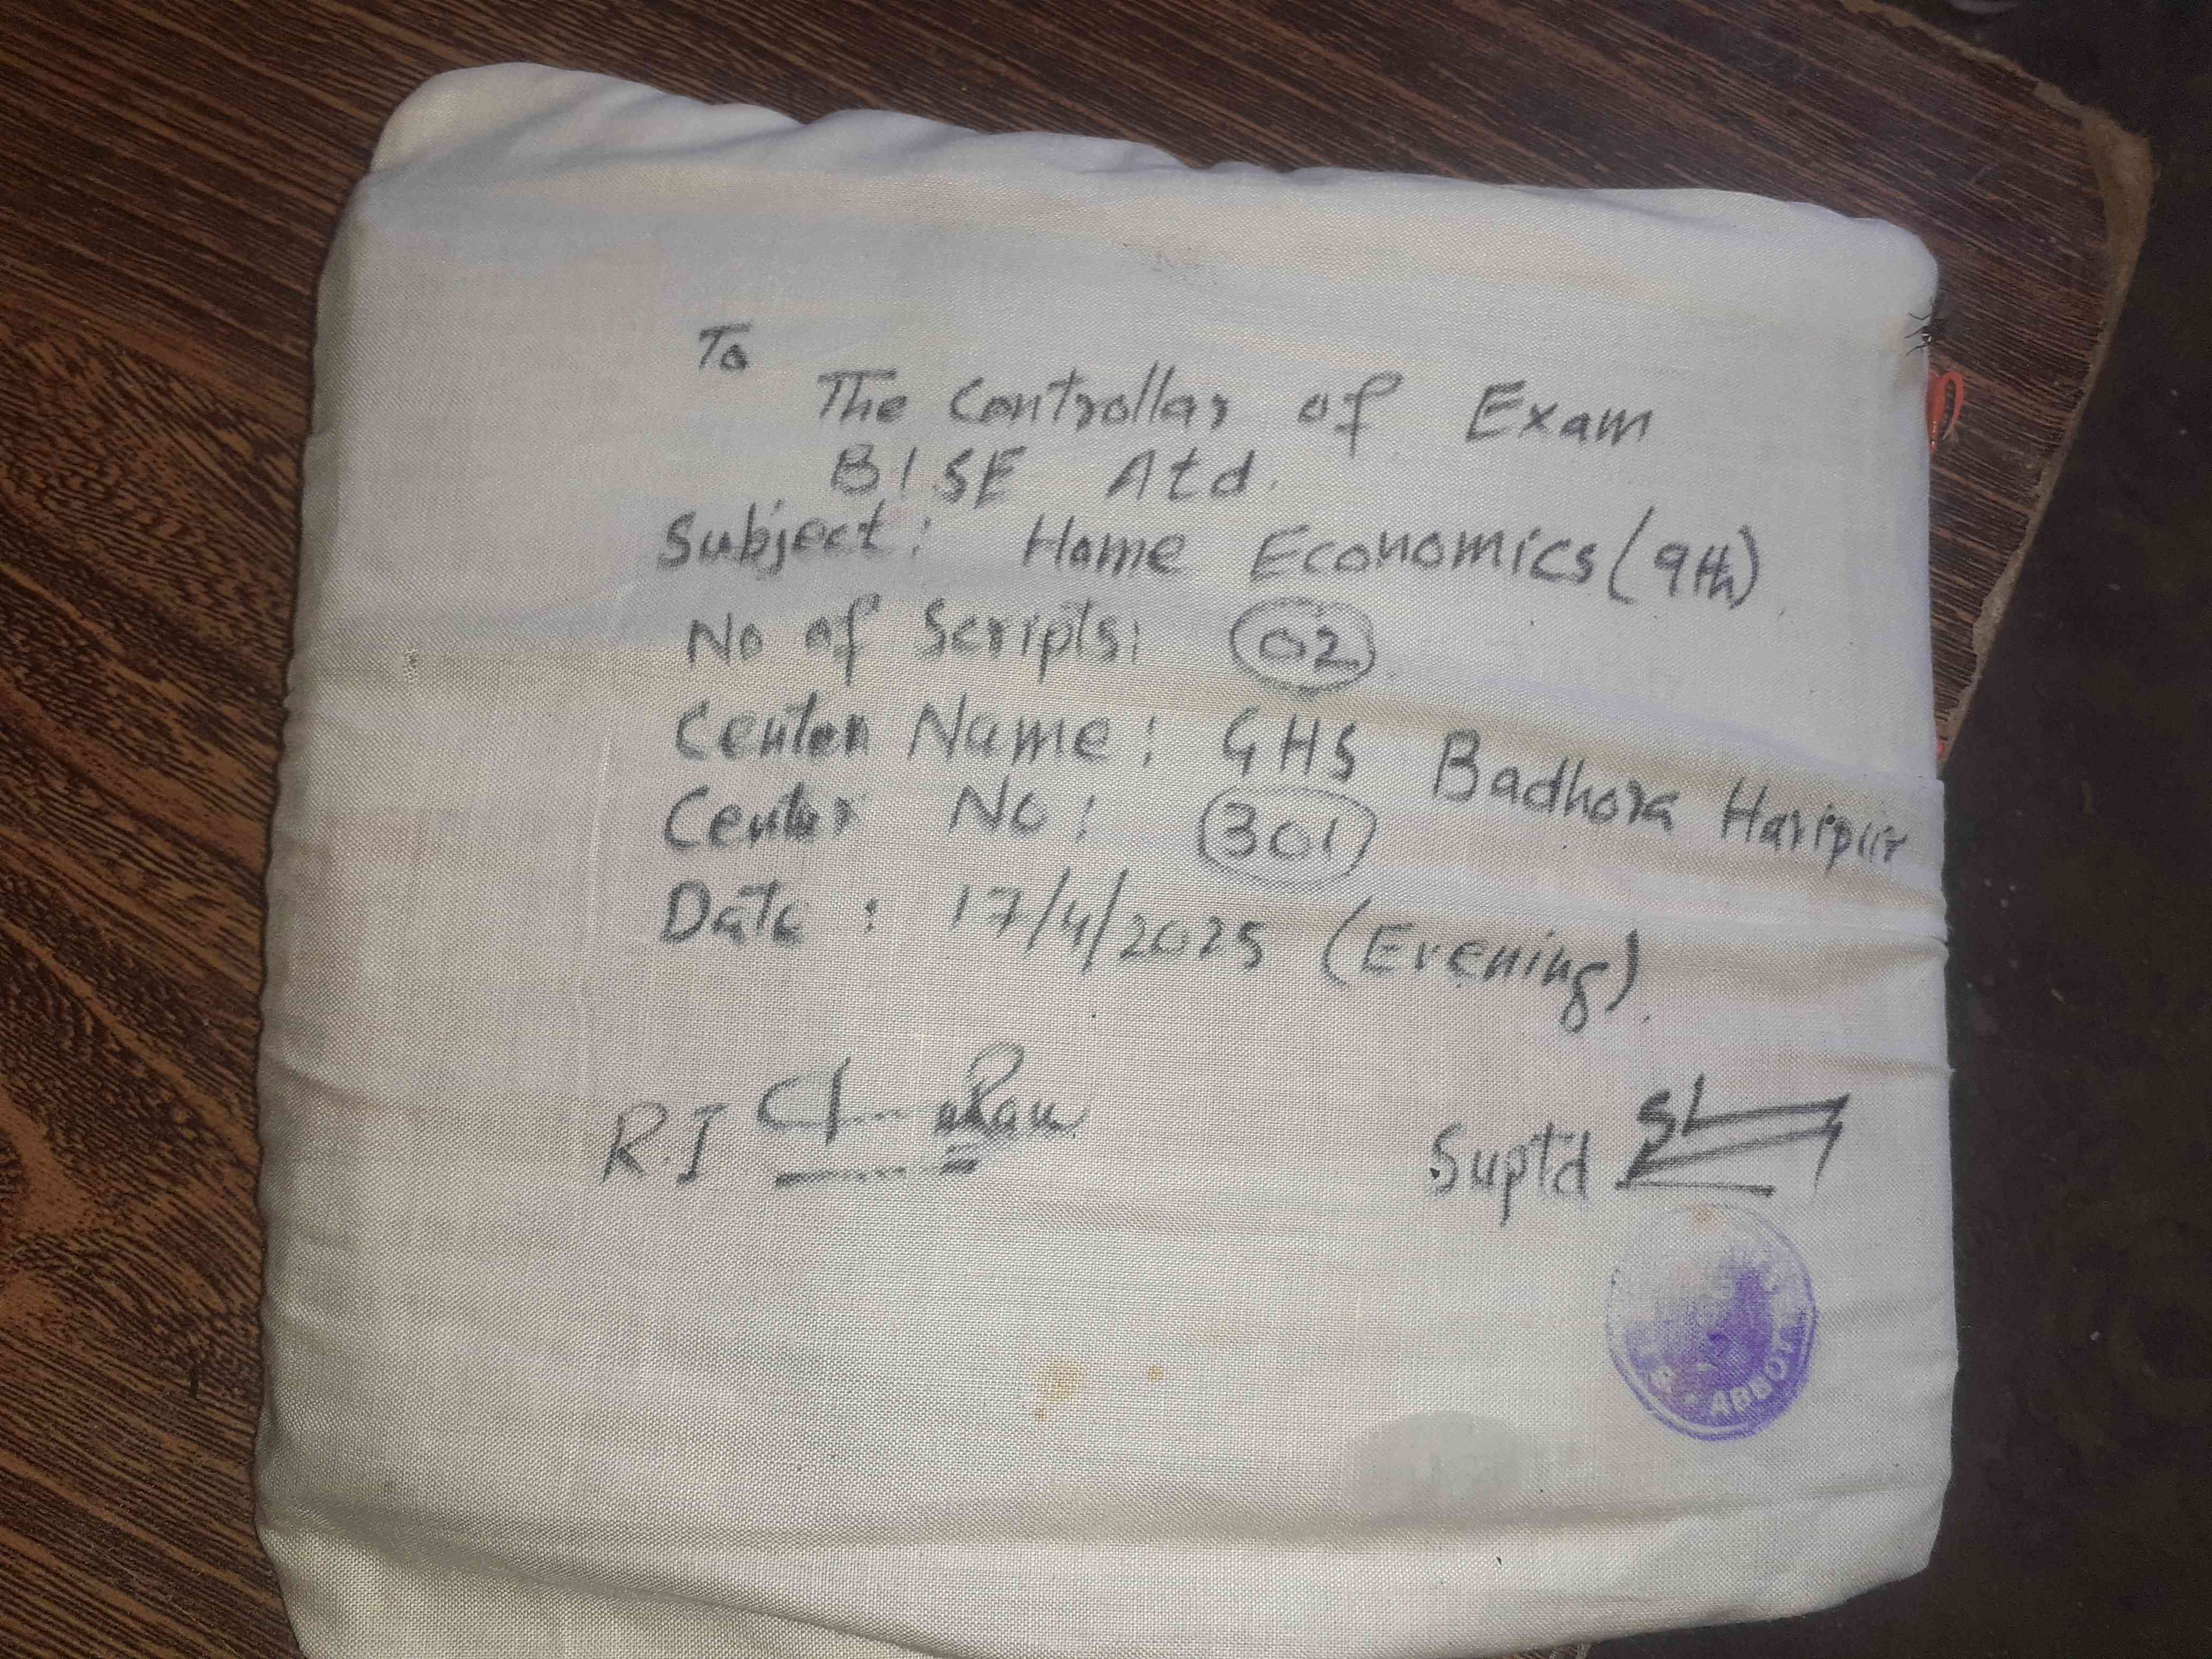 To
The Controllar of Exam
BISE Atd.
Subject: Home Economics (9th)
No of Scripts: 02
Center Name: GHS Badhora Haripur
Center No: 301
Date: 17/4/2025 (Evening).
R.I
Suptd
ABBOTT